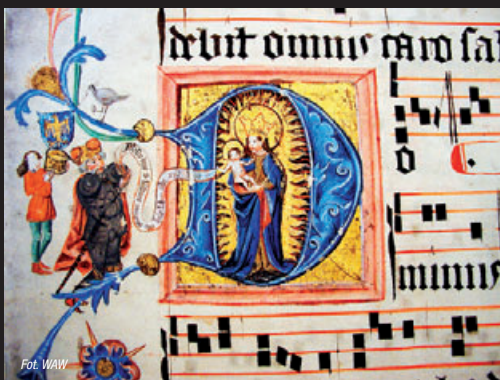 debit omnis caro sal
D
o
minus
Fot. WAW